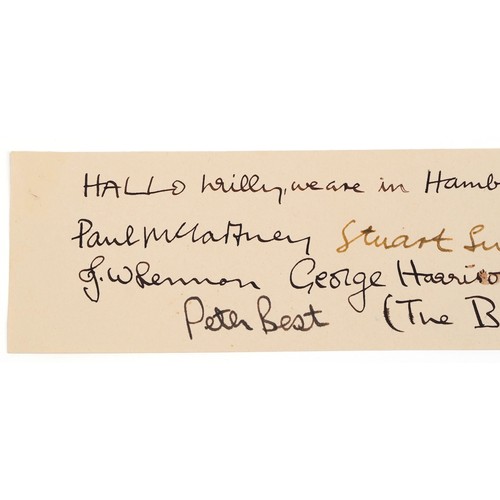 HALLO Willy, we are in Hamb
Paul McCartney Stuart Su
J. W Lennon George Harriso
Peter Best (The B